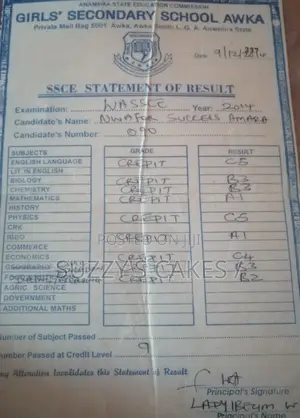 ANAMBRA STATE EDUCATION COMMISSION
GIRLS' SECONDARY SCHOOL AWKA
Private Mail Bag 5001, Awka, Awka South L.G.A. Anambra State
SSCE STATEMENT OF RESULT
Examination: WASSCE Year: 2014
Candidate's Name NWAFOR SUCCESS AMARA
Candidate's Number 090
SUBJECTS GRADE RESULT
ENGLISH LANGUAGE CREDIT C5
LIT IN ENGLISH
BIOLOGY CREDIT B3
CHEMISTRY CREDIT B3
MATHEMATICS CREDIT A1
HISTORY
PHYSICS CREDIT C5
CRK
IGBO A1
COMMERCE
ECONOMICS CREDIT C4
CREDIT B3
CREDIT B2
AGRIC SCIENCE
GOVERNMENT
ADDITIONAL MATHS
SUZZY'S CAKES
Number of Subject Passed
Number Passed at Credit Level 9
Any Alteration Invalidates this Statement of Result
Principal's Signature
Principal's Name